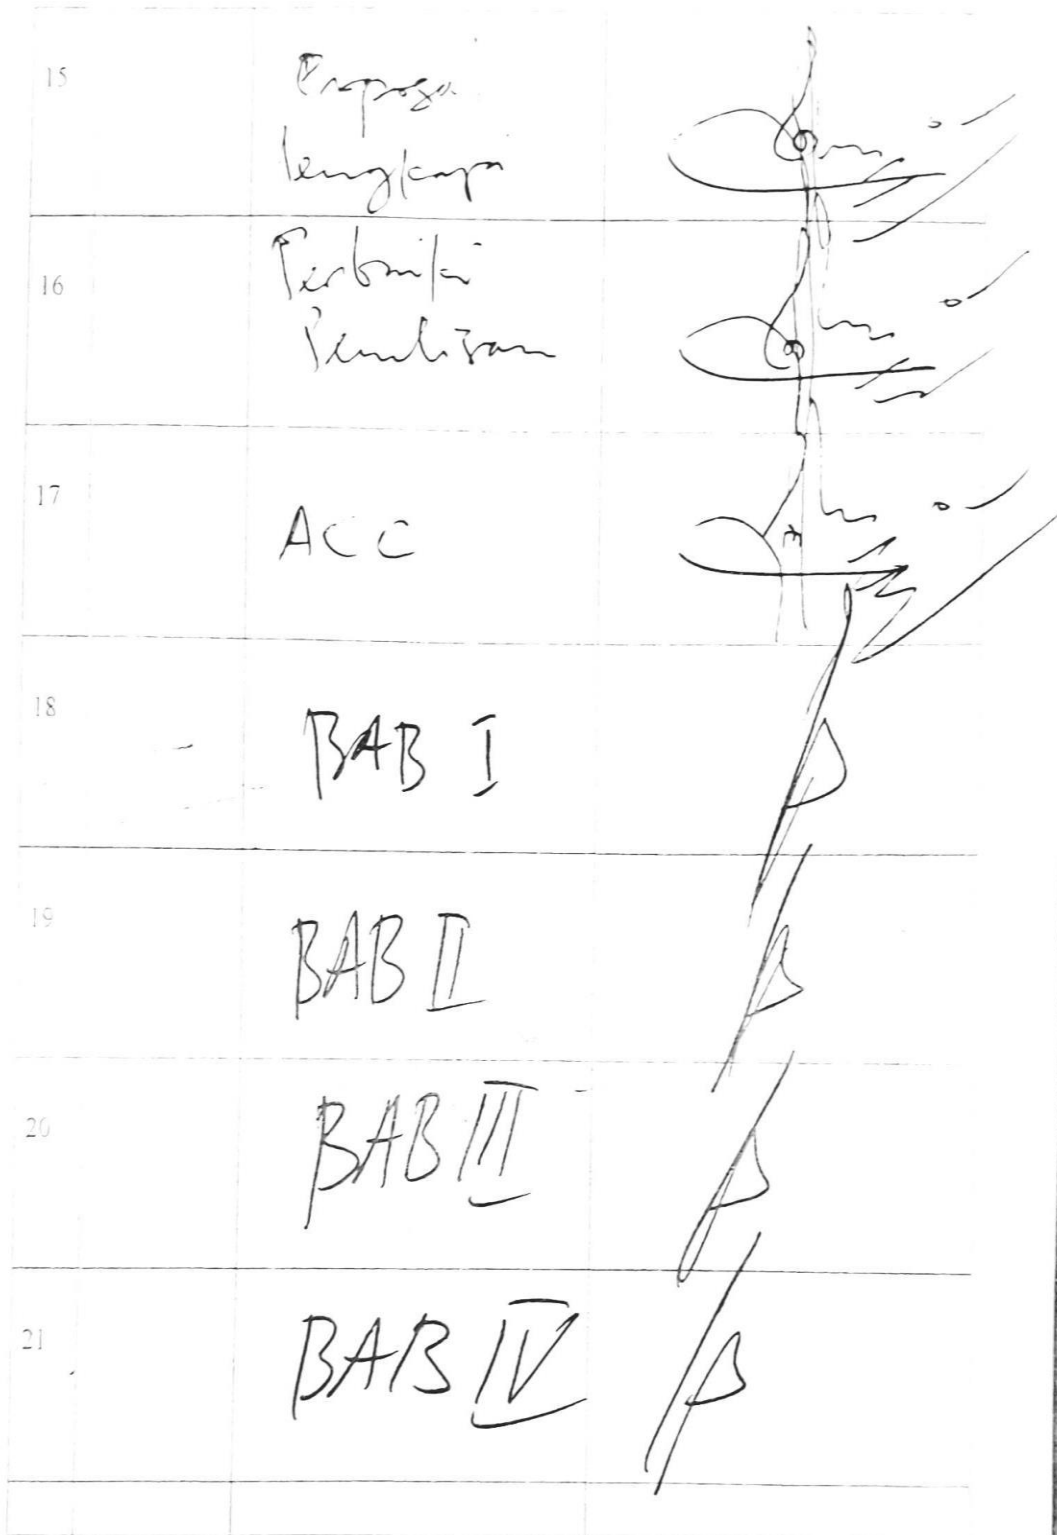 15
Proposa
lengkapi
16
Perbaiki
Penulisan
17
ACC
18
BAB I
19
BAB II
20
BAB III
21
BAB IV